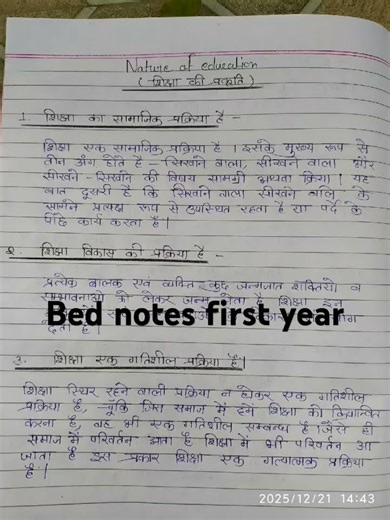 Nature of education
( शिक्षा की प्रकृति )
1. शिक्षा का सामाजिक प्रक्रिया है -
शिक्षा एक सामाजिक प्रक्रिया है । इसके मुख्य रूप से
तीन अंग होते है - सिखाने वाला, सीखने वाला और
सीखने - सिखाने की विषय सामग्री अथवा क्रिया । यह
बात दूसरी है कि सिखाने वाला सीखने वाले के
सामने प्रत्यक्ष रूप से उपस्थित रहता है या पर्दे के
पीछे कार्य करता है ।
2. शिक्षा विकास की प्रक्रिया है -
प्रत्येक बालक एवं व्यक्ति कुछ जन्मजात शक्तियों व
सम्भावनाओं को लेकर जन्म लेता है शिक्षा इन
Bed notes first year
देता है ।
3. शिक्षा एक गतिशील प्रक्रिया है ।
शिक्षा स्थिर रहने वाली प्रक्रिया न होकर एक गतिशील
प्रक्रिया है, चूंकि जिस समाज में हमें शिक्षा को क्रियान्वित
करना है, वह भी एक गतिशील सम्बन्ध है । जैसे ही
समाज में परिवर्तन आता है शिक्षा में भी परिवर्तन आ
जाता है इस प्रकार शिक्षा एक गत्यात्मक प्रक्रिया
है ।
2025/12/21 14:43